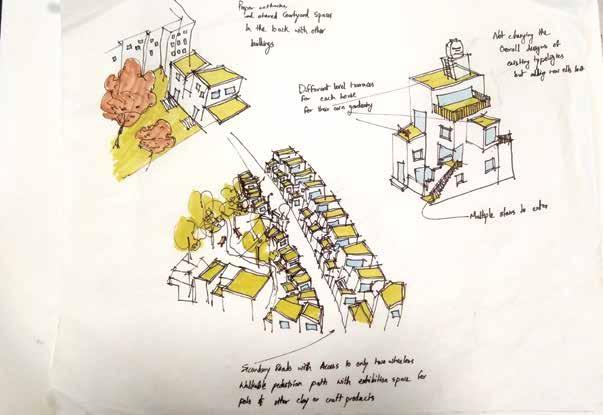 Proper
and shared Courtyard Space
In the back with other
buildings
Not changing the
Overall designs of
existing typologies
but adding new
Different level terraces
for each house
for their own gardening
Multiple stairs to enter
Secondary Roads with Access to only two wheelers
Walkable pedestrian path with exhibition space for
Pots & other clay or craft products